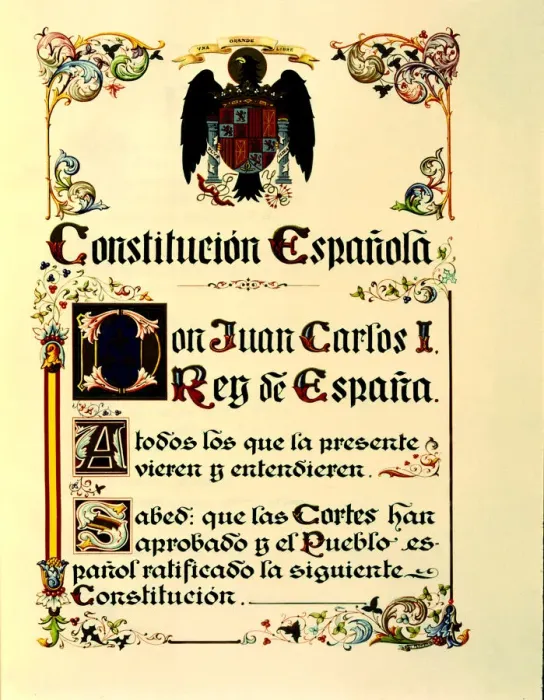 UNA GRANDE LIBRE
Constitución Española
Don Juan Carlos I.
Rey de España.
A todos los que la presente
vieren y entendieren.
Sabed: que las Cortes han
aprobado y el Pueblo es-
pañol ratificado la siguiente
Constitución.